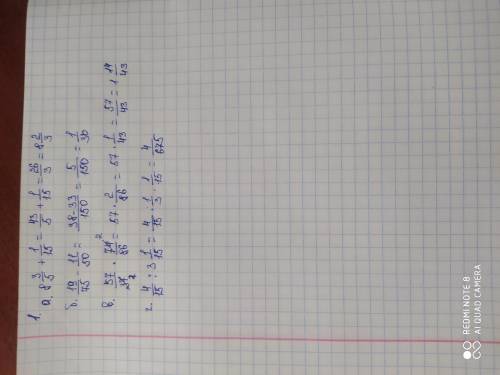 1.
а. 8 3/5 + 1/15 = 43/5 + 1/15 = 26/3 = 8 2/3
б. 19/75 - 11/50 = 38-33/150 = 5/150 = 1/30
в. 57/37 · 74 2/86 = 57 · 2/86 = 57 · 1/43 = 57/43 = 1 14/43
г. 4/15 : 3 1/15 = 4/15 · 1/3 · 1/15 = 4/675
REDMI NOTE 8
AI QUAD CAMERA